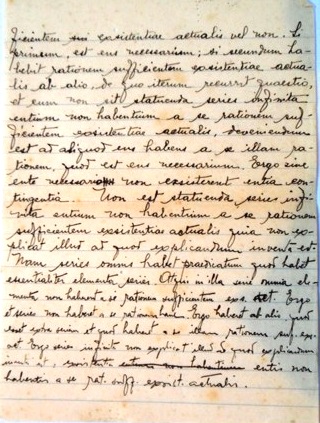 ficientem existentiae actualis vel non. Si
primum, est ens necessarium; si secundum ha-
bebit rationem sufficientem existentiae actua-
lis ab alio, de quo iterum recurrit quaestio,
et cum non sit statuenda series infinita
entium non habentium a se rationem suf-
ficientem existentiae actualis, deveniendum
est ad aliquod ens habens a se illam ra-
tionem, quod est ens necessarium. Ergo sine
ente necessario non existerent entia con-
tingentia. Non est statuenda series infi-
nita entium non habentium a se rationem
sufficientem existentiae actualis quia non ex-
plicat illud ad quod explicandum inventa est.
Nam series omnis habet praedicatum quod habet
essentialiter elementa seriei. Atqui in illa serie omnia ele-
menta non habent a se rationem sufficientem exis. act. Ergo
et series non habet a se rationem ham. Ergo habet ab alio, quod
sit extra seriem et quod habeat a se illam rationem suff. exis.
act. Ergo series infinita non explicat illud ad quod explicandum
inventa est, existentia entis non
habentis a se rat. suff. exist. actualis.